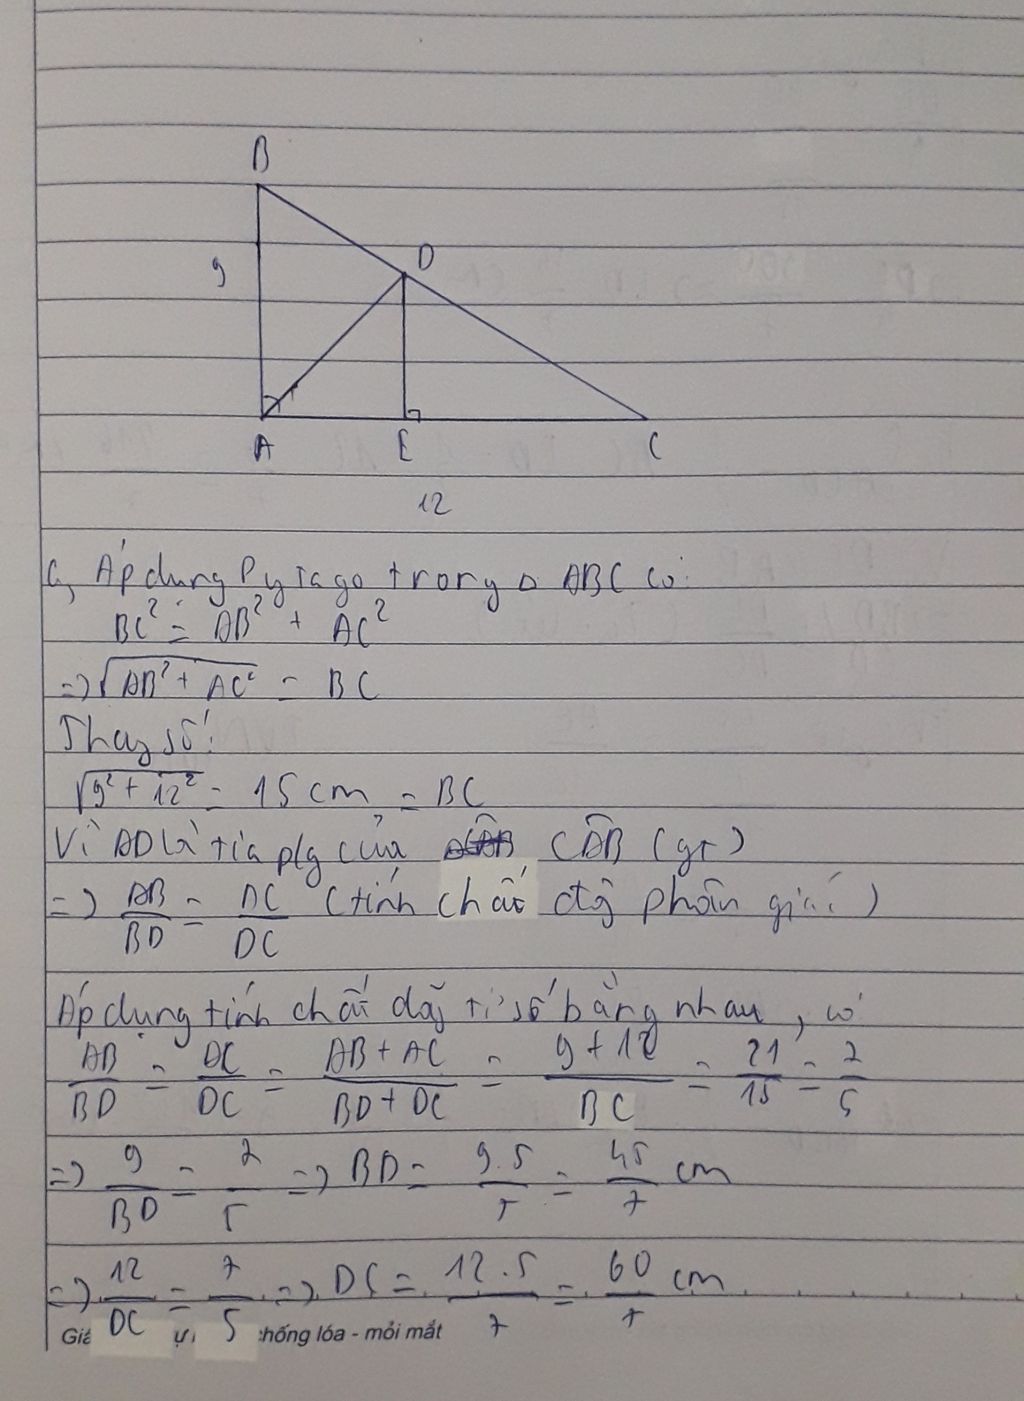 B
D
9
A E C
12
a, Áp dụng Pytago trong Δ ABC có:
BC² = AB² + AC²
=> √AB² + AC² = BC
Thay số:
√9² + 12² = 15 cm = BC
Vì AD là tia p/g của CÂB (gt)
=> AB/BD = AC/DC (tính chất đg phân giác)
Áp dụng tính chất dãy tỉ số bằng nhau, có
AB/BD = AC/DC = AB + AC/BD + DC = 9 + 12/BC = 21/15 = 7/5
=> 9/BD = 7/5 => BD = 9.5/7 = 45/7 cm
=> 12/DC = 7/5 => DC = 12.5/7 = 60/7 cm
chống lóa - mỏi mắt